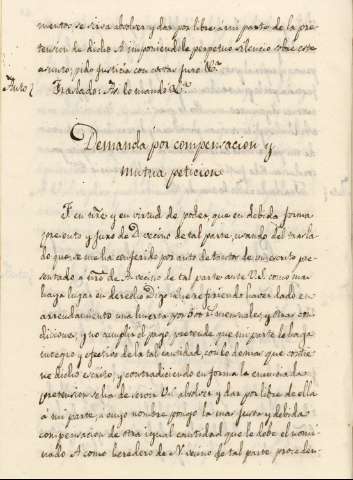 mentos se sirva absolver y dar por libre á mi parte de la pre
tension de dicho A imponiendole perpetuo silencio sobre este
asunto; pido Justicia con costas juro &a
Auto / Traslado: As. lo mandó &a
Demanda por compensacion y
mutua peticion
F en nre y en virtud de poder, que en debida forma
presento y juro de D vecino de tal parte, usando del trasla
do que se me ha conferido por auto de tantos de un escrito pre
sentado á nre de A vecino de tal parte ante V.S. como mas
haya lugar en derecho Digo: que refiriendo haver dado en
arrendamiento una huerta por 500 mensuales, y otras con
diciones, y no cumplir el pago, pretende que mi parte le haga
integro y efectivo de la tal cantidad, con lo demas que contie
ne dicho escrito, y contradiciendo en forma la enunciada
pretension se ha de servir V.S. absolver y dar por libre de ella
á mi parte, á cuyo nombre pongo la mas justa y debida
compensacion de otra igual cantidad que le debe el nomi
nado A como heredero de N vecino de tal parte proceden-